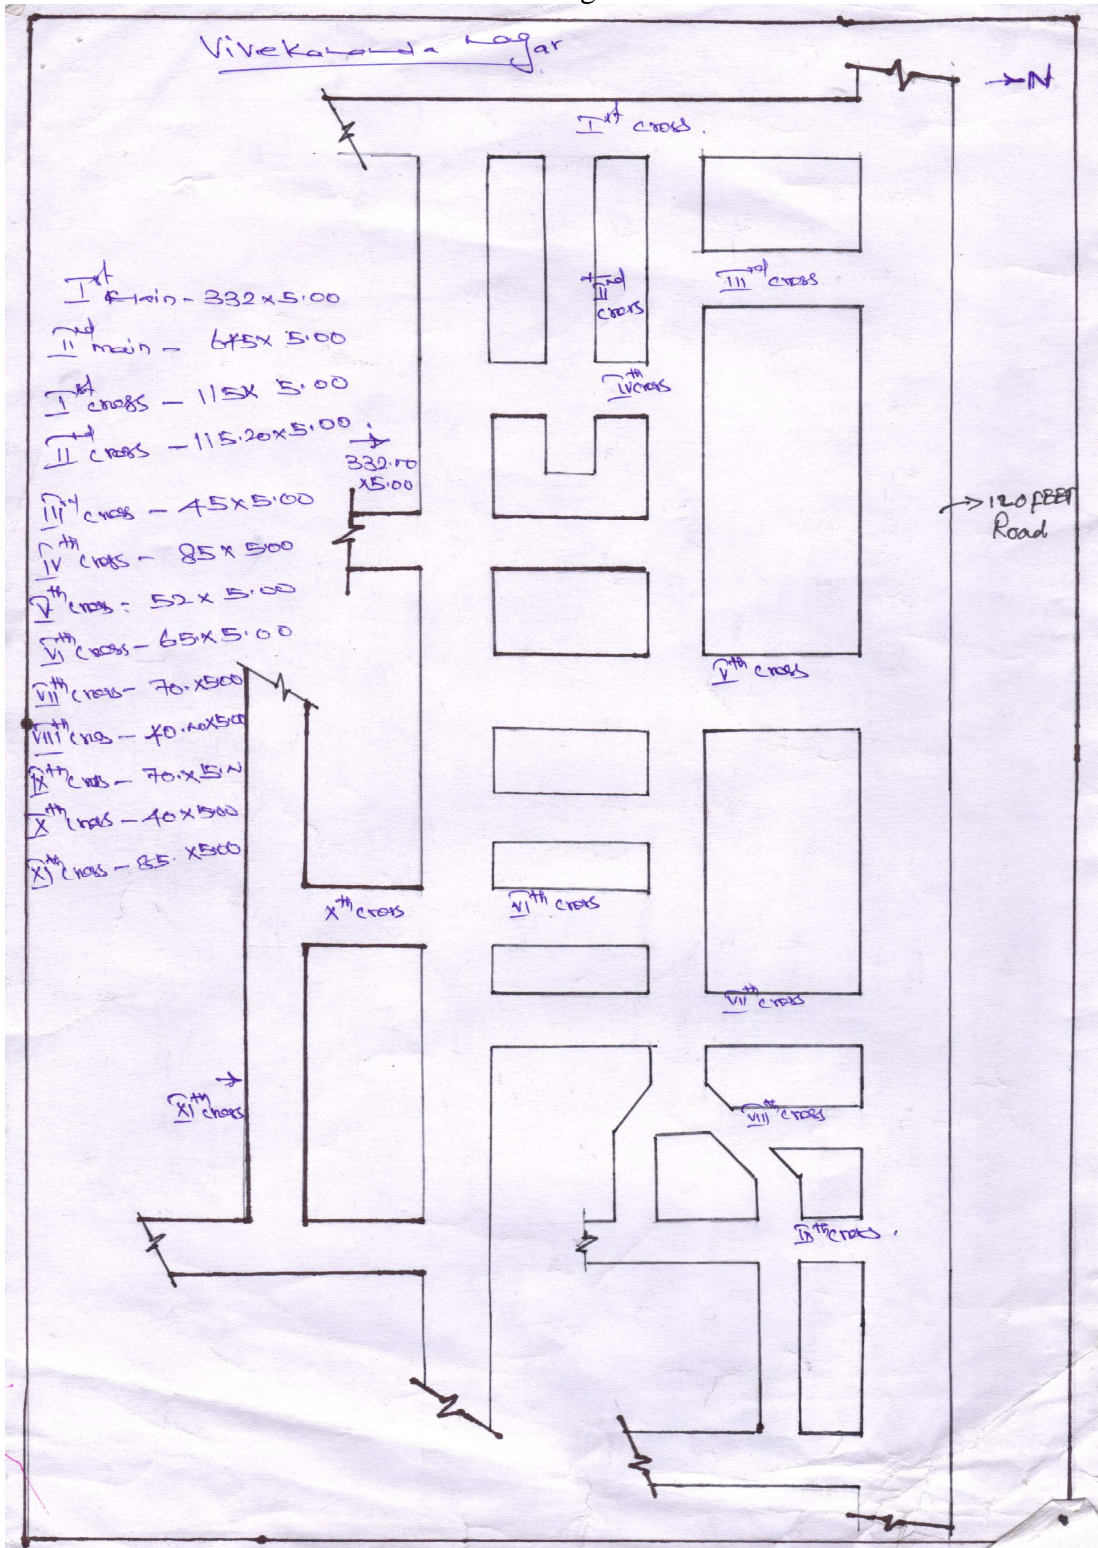 Vivekananda nagar
→N
Ist cross.
Ist Main - 332 x 5.00
IInd main - 645 x 5.00
Ist cross - 115x 5.00
IInd cross - 115.20x5.00.
IIIrd cross - 45x5.00
IVth cross - 85 x 500
Vth cross - 52 x 5.00
VIth cross - 65x5.00
VIIth cross - 70.x500
VIIIth cross - 40.20x500
IXth cross - 70.x5.00
Xth cross - 40x500
XIth cross - 85. x500
IInd
cross
IIIrd cross
IVth cross
→
332.00
x5.00
→120 FEET
Road
Vth cross
Xth cross
VIth cross
VIIth cross
→
XIth cross
VIIIth cross
IXth cross.